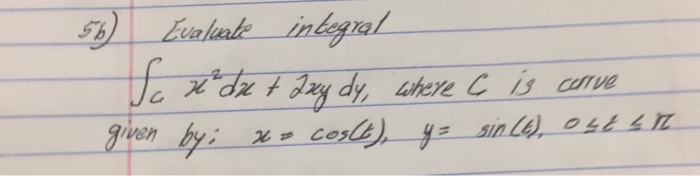 5b) Evaluate integral
∫c x²dx + 2xy dy, where C is curve
given by: x = cos(t), y = sin(t), 0 ≤ t ≤ π